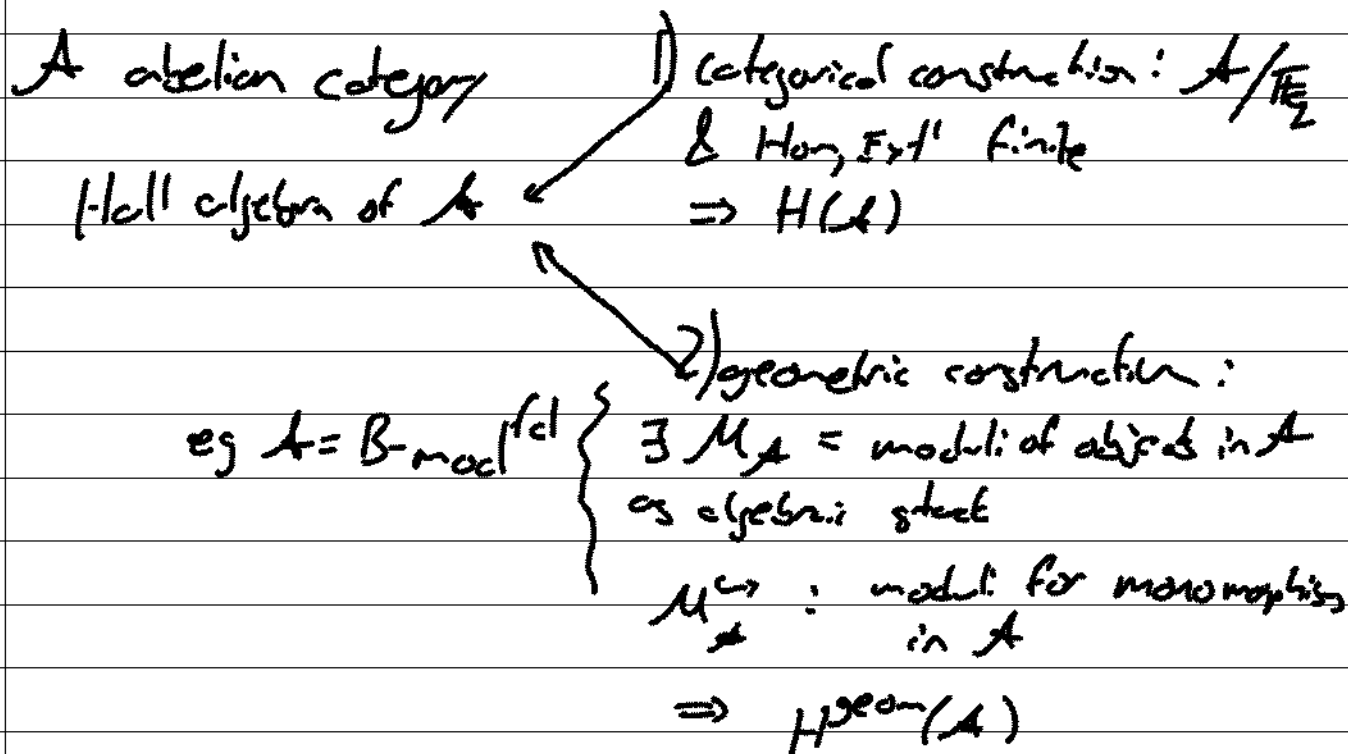 A abelian category
Hall algebra of A
1) categorical construction: A/𝔽_q
& Hom, Ext¹ finite
⇒ H(A)
2) geometric construction:
eg A = B-mod^fd
∃ M_A = moduli of objects in A
as algebraic stack
M_A^↪ : moduli for monomorphisms
in A
⇒ H^geom(A)